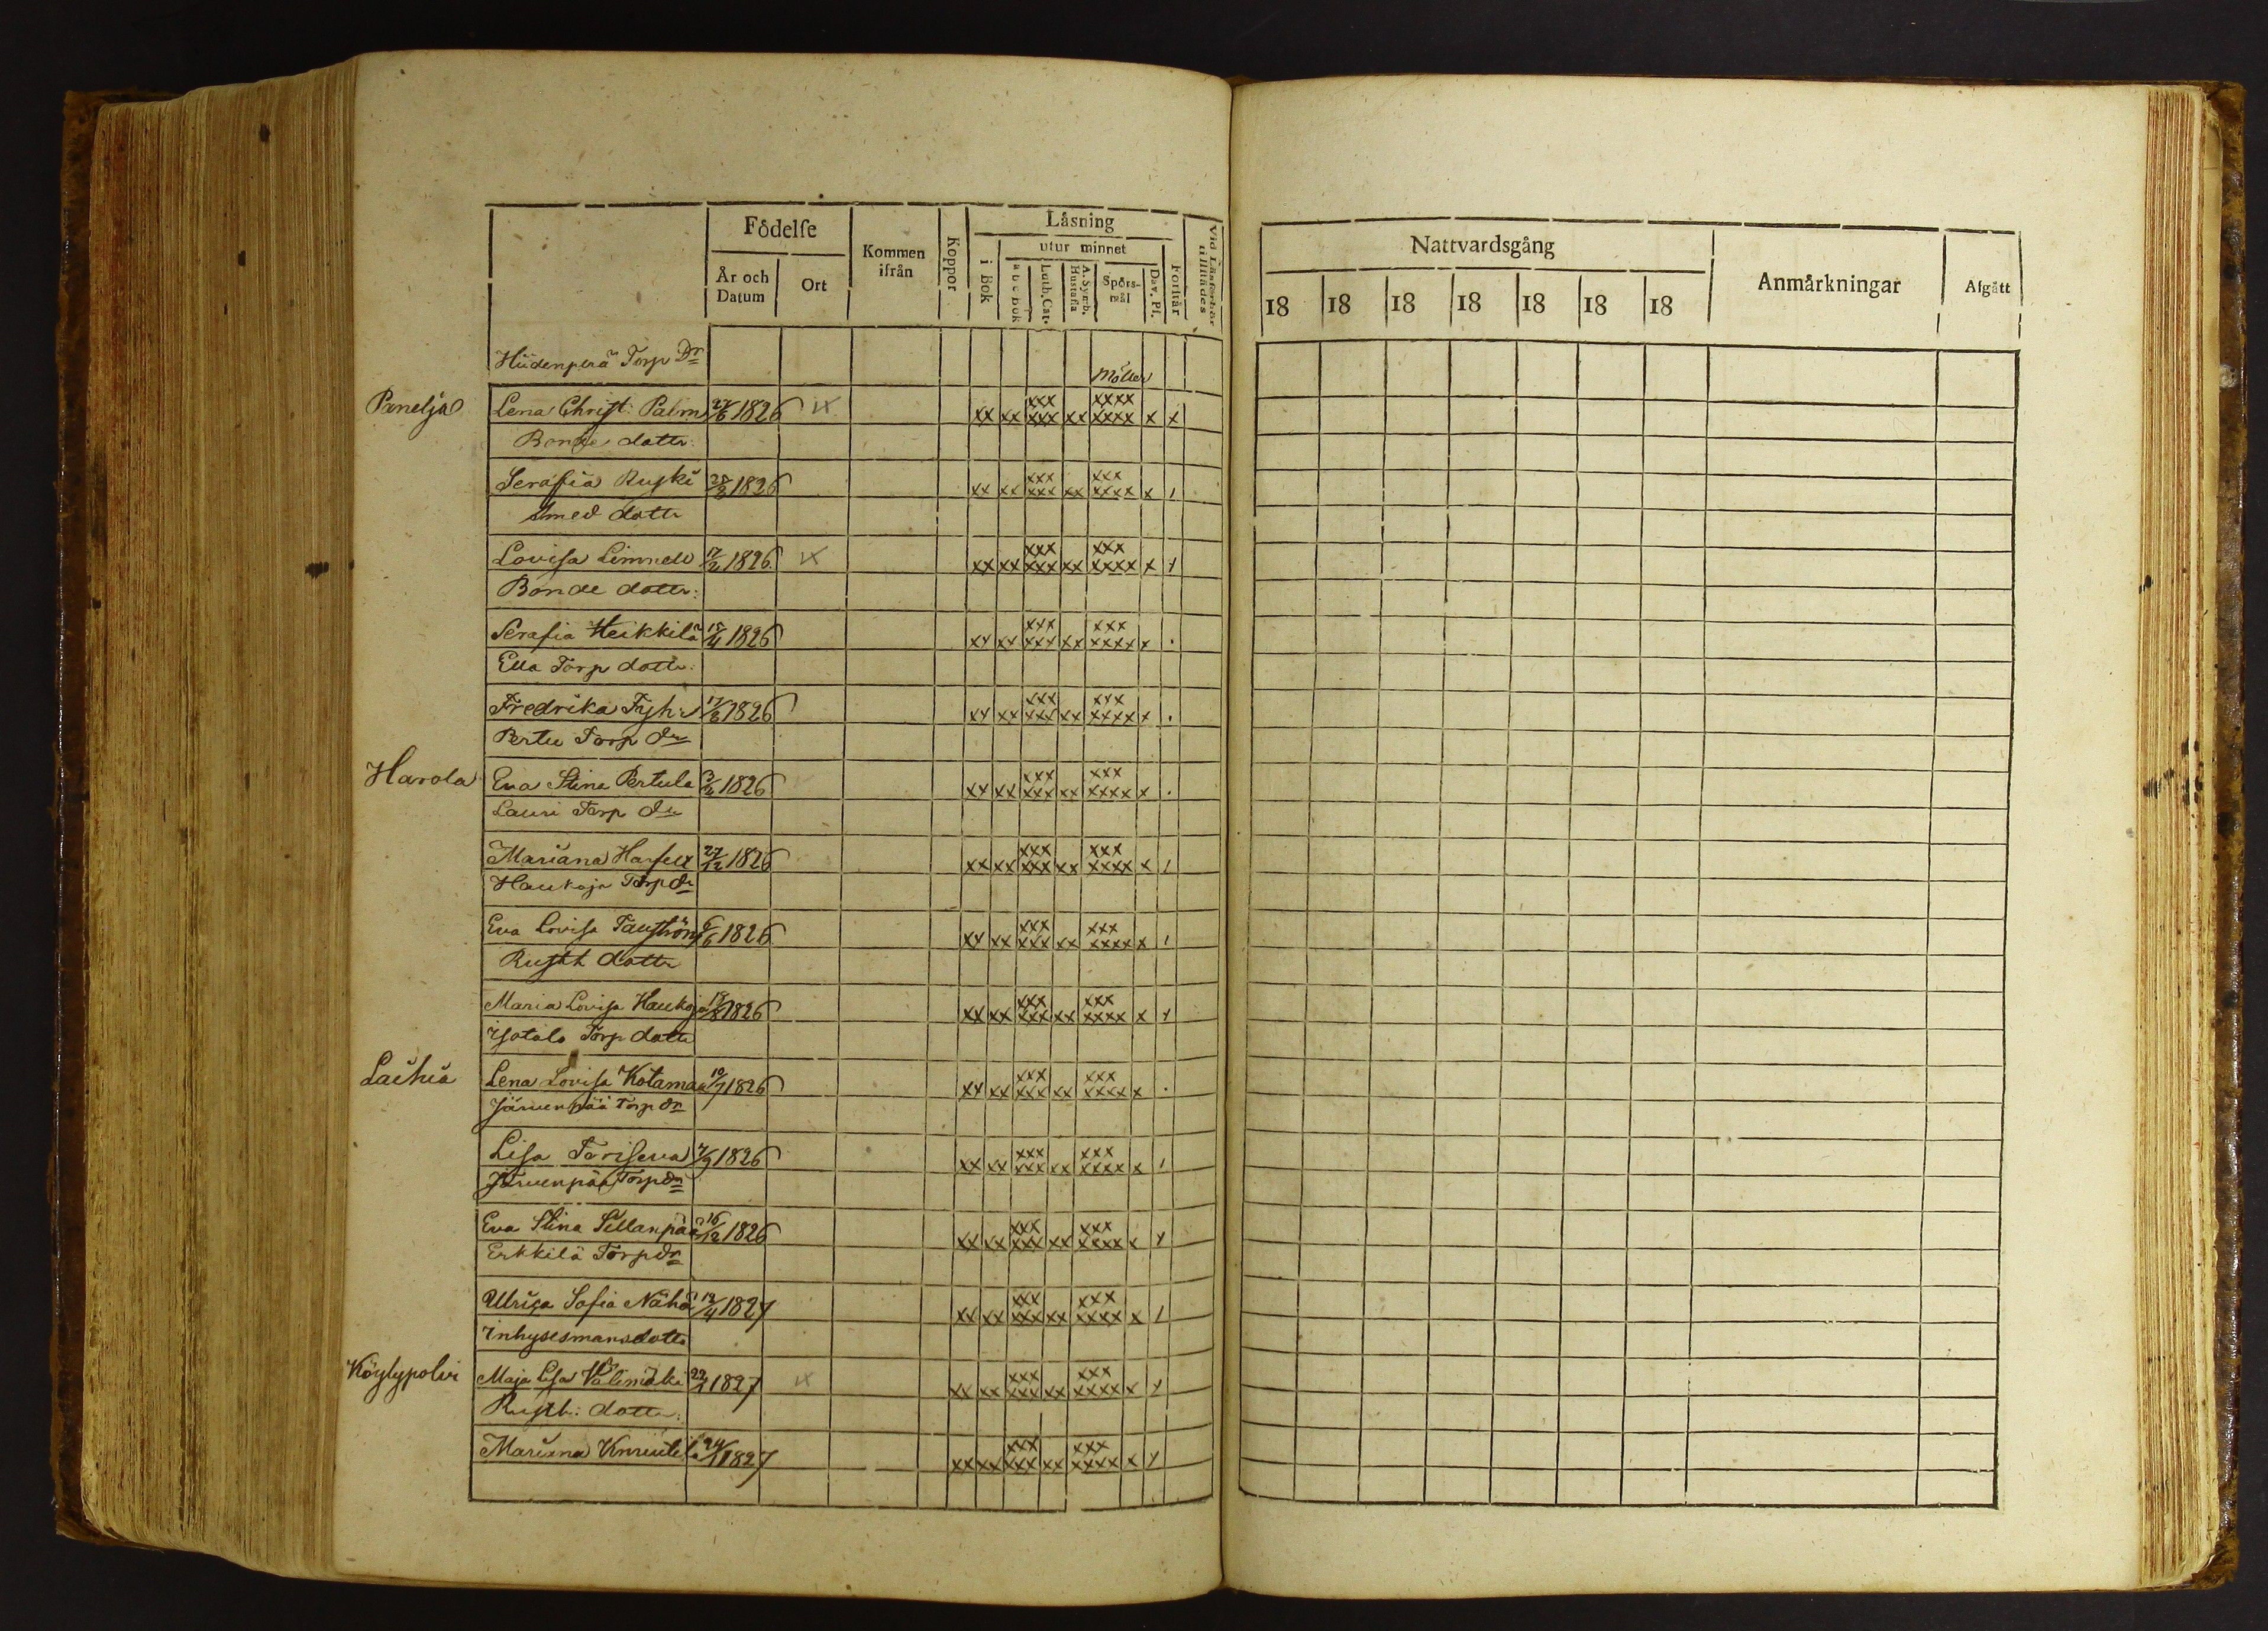 Födelse
Läsning
Kommen ifrån
Koppor
utur minnet
Vid Läsförhör tillstädes
År och Datum
Ort
i Bok
a b c bok
Luth. Cat.
A. Symb. Hustafla
Spörsmål
Dav. Ps.
Förstår
Nattvardsgång
Anmärkningar
Afgått
18 18 18 18 18 18 18
Hiidenperä Torp Dr
Möller
Panelja Lena Christ: Palm 27/6 1826 xx xx xxx xxx xx xxxx xxxx x x
Bonde dottr:
Serafia Ruski 28/3 1826 xx xx xxx xxx xx xxx xxxx x
Smed dottr
Lovisa Limnell 17/2 1826 xx xx xxx xxx xx xxx xxxx x
Bonde dottr:
Serafia Heikkilä 18/4 1826 xx xx xxx xxx xx xxx xxxx x
Ella Torp dottr:
Fredrika 17/8 1826 xx xx xxx xxx xx xxx xxxx x
Pertu Torp dr
Harola Eva Stina Pertula 1826 xx xx xxx xxx xx xxx xxxx x
Lauri Torp dr
Mariana 27/12 1826 xx xx xxx xxx xx xxx xxxx x
Haukoja Torp dr
Eva Lovisa 6/6 1826 xx xx xxx xxx xx xxx xxxx x
Rusth dottr
Maria Lovisa Haukoja 18/8 1826 xx xx xxx xxx xx xxx xxxx x
Isotalo Torp dottr
Laihia Lena Lovisa Kotamaa 10/7 1826 xx xx xxx xxx xx xxx xxxx x
Järvenpää Torp dr
Lisa 7/9 1826 xx xx xxx xxx xx xxx xxxx x
Järvenpää Torp dr
Eva Stina Sillanpää 16/12 1826 xx xx xxx xxx xx xxx xxxx x
Erkkilä Torp dr
Ulrica Sofia Nähi 1827 xx xx xxx xxx xx xxx xxxx x
Inhysesmansdottr
Köylypolvi Maja Lisa Välimäki 22/1 1827 xx xx xxx xxx xx xxx xxxx x
Rusth: dottr:
Mariana Knuutila 24/1 1827 xx xx xxx xxx xx xxx xxxx x